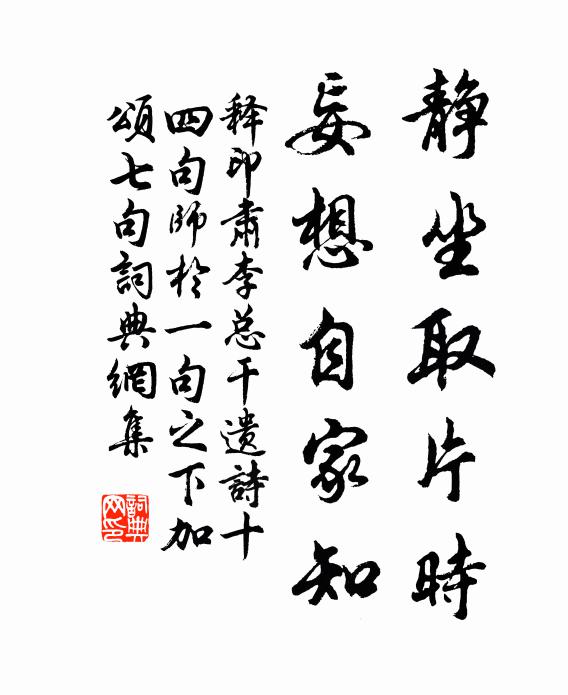 静坐取片時
妄想自家知
释印肃李总干遗詩十
四句師於一句之下加
頌七句詞典網集
詞典
网印